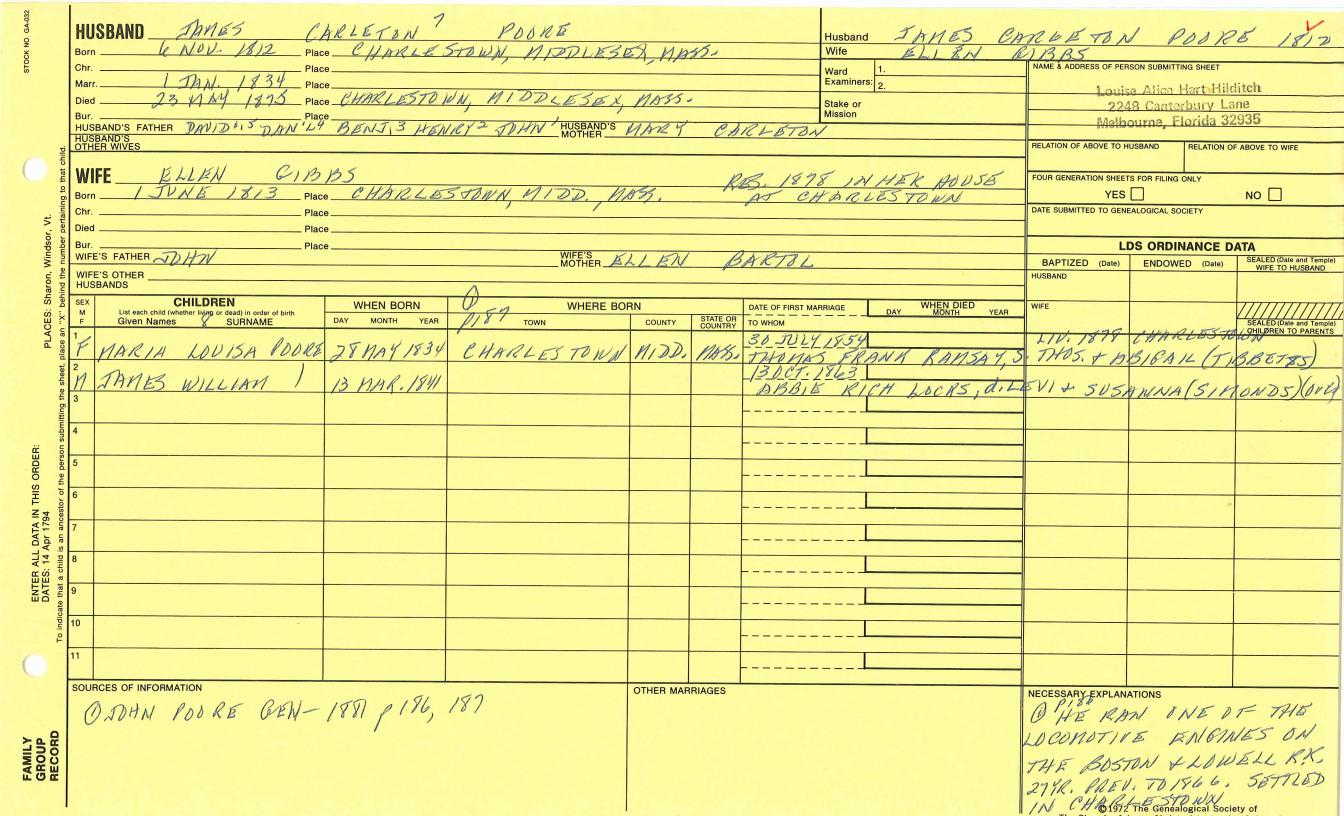 STOCK NO. GA-032
HUSBAND JAMES CARLETON 7 POORE
Born 6 NOV. 1812 Place CHARLESTOWN, MIDDLESEX, MASS.
Chr. Place
Marr. 1 JAN. 1834 Place
Died 23 MAY 1875 Place CHARLESTOWN, MIDDLESEX, MASS.
Bur. Place
HUSBAND'S FATHER DAVID 6,5 DAN'L 4 BENJ. 3 HENRY 2 JOHN 1 HUSBAND'S MOTHER MARY CARLETON
HUSBAND'S OTHER WIVES
WIFE ELLEN GIBBS
RES. 1878 IN HER HOUSE
AT CHARLESTOWN
Born 1 JUNE 1813 Place CHARLESTOWN, MIDD., MASS.
Chr. Place
Died Place
Bur. Place
WIFE'S FATHER JOHN WIFE'S MOTHER ELLEN BARTOL
WIFE'S OTHER HUSBANDS
Husband JAMES CARLETON POORE 1812
Wife ELLEN GIBBS
Ward Examiners: 1.
2.
Stake or Mission
NAME & ADDRESS OF PERSON SUBMITTING SHEET
Louise Alice Hart Hilditch
2248 Canterbury Lane
Melbourne, Florida 32935
RELATION OF ABOVE TO HUSBAND RELATION OF ABOVE TO WIFE
FOUR GENERATION SHEETS FOR FILING ONLY
YES NO
DATE SUBMITTED TO GENEALOGICAL SOCIETY
LDS ORDINANCE DATA
BAPTIZED (Date) ENDOWED (Date) SEALED (Date and Temple) WIFE TO HUSBAND
HUSBAND
WIFE
SEALED (Date and Temple) CHILDREN TO PARENTS
SEX M F
CHILDREN
List each child (whether living or dead) in order of birth
Given Names 8 SURNAME
WHEN BORN
DAY MONTH YEAR
① p187
WHERE BORN
TOWN COUNTY STATE OR COUNTRY
DATE OF FIRST MARRIAGE
TO WHOM
WHEN DIED
DAY MONTH YEAR
1 F MARIA LOUISA POORE 28 MAY 1834 CHARLESTOWN MIDD. MASS. 30 JULY 1854 LIV. 1878 CHARLESTOWN
THOMAS FRANK RAMSAY, S. THOS. & ABIGAIL (TIBBETTS)
2 M JAMES WILLIAM 13 MAR. 1841 13 OCT. 1863
ABBIE RICH LOCKS, d. LEVI & SUSANNA (SIMONDS) (OVER)
3
4
5
6
7
8
9
10
11
SOURCES OF INFORMATION
① JOHN POORE GEN— 1881 p 186, 187
OTHER MARRIAGES
NECESSARY EXPLANATIONS
① P186 HE RAN ONE OF THE
LOCOMOTIVE ENGINES ON
THE BOSTON & LOWELL R.R.
27 YR. PREV. TO 1866. SETTLED
IN CHARLESTOWN
©1972 The Genealogical Society of
ENTER ALL DATA IN THIS ORDER:
DATES: 14 Apr 1794 PLACES: Sharon, Windsor, Vt.
To indicate that a child is an ancestor of the person submitting the sheet, place an "X" behind the number pertaining to that child.
FAMILY
GROUP
RECORD